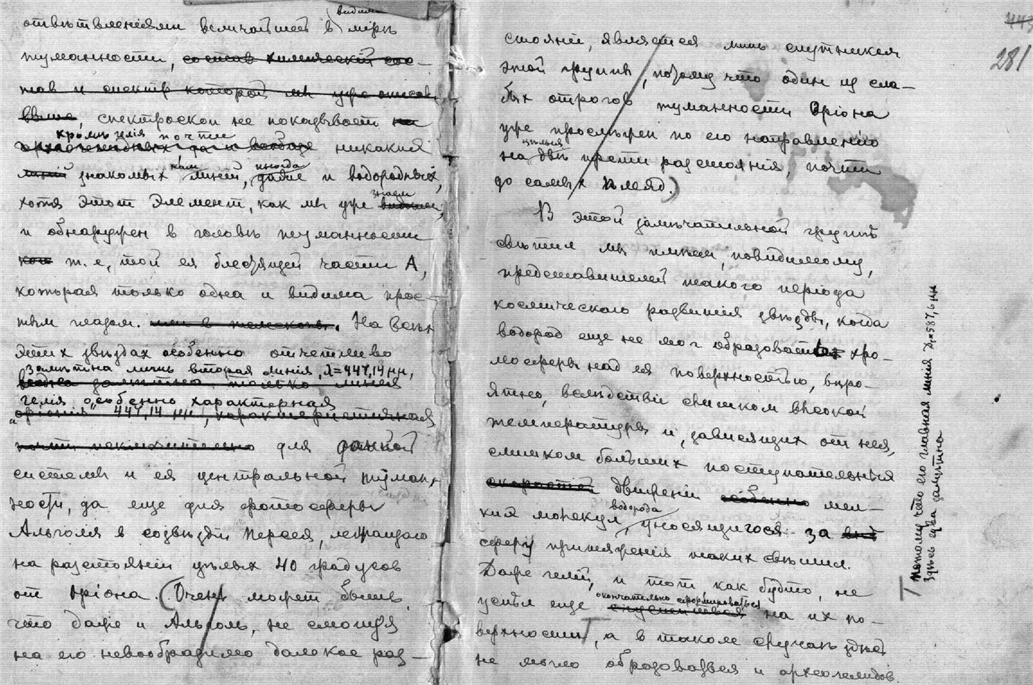 видимой
отвѣтвленіями величайшей в мірѣ
туманности, состав химическій сос-
тав и спектр которой мы уже описали
выше, спектроскоп не показывает
кромѣ гелія почти
никаких
знакомых нам линій, даже иногда и водородных,
хотя этот элемент, как мы уже знаем,
и обнаружен в головѣ туманности
т. е. той ея блестящей части А,
которая только одна и видима прос-
тым глазом. На всѣх
этих звѣздах особенно отчетливо
замѣтна лишь вторая линія, λ=447,14 μμ,
всегда замѣтна только линія
гелія, особенно характерная
447,14 μμ, характеристичная
для данной
системы и ея центральной туман-
ности, да еще для фотосферы
Альголя в созвѣздіи Персея, лежащаго
на разстояніи цѣлых 40 градусов
от Оріона. (Очень может быть,
что даже и Альголь, не смотря
на его невообразимо далекое раз-
281
стояніе, является лишь спутником
этой группы, потому что один из сла-
бых отрогов туманности Оріона
уже прослѣжен по его направленію
на цѣлыя двѣ трети разстоянія, почти
до самых Плеяд.)
В этой замѣчательной группѣ
свѣтил мы имѣем, повидимому,
представителей такого періода
космическаго развитія звѣзды, когда
водород еще не мог образовать хро-
мосферы над ея поверхностью, вѣро-
ятно, вслѣдствіе слишком высокой
температуры и, зависящих от нея,
слишком больших поступательных
скоростей движеній особенно мел-
ких молекул водорода, уносящихся за
сферу притяженія таких свѣтил.
Даже гелій, и тот как будто, не
успѣл еще окончательно сформироваться на их по-
верхности, а в таком случаѣ здѣсь
не могло образоваться и археогелидов.
потому что его главная линія D₃=587,6 μμ
здѣсь едва замѣтна